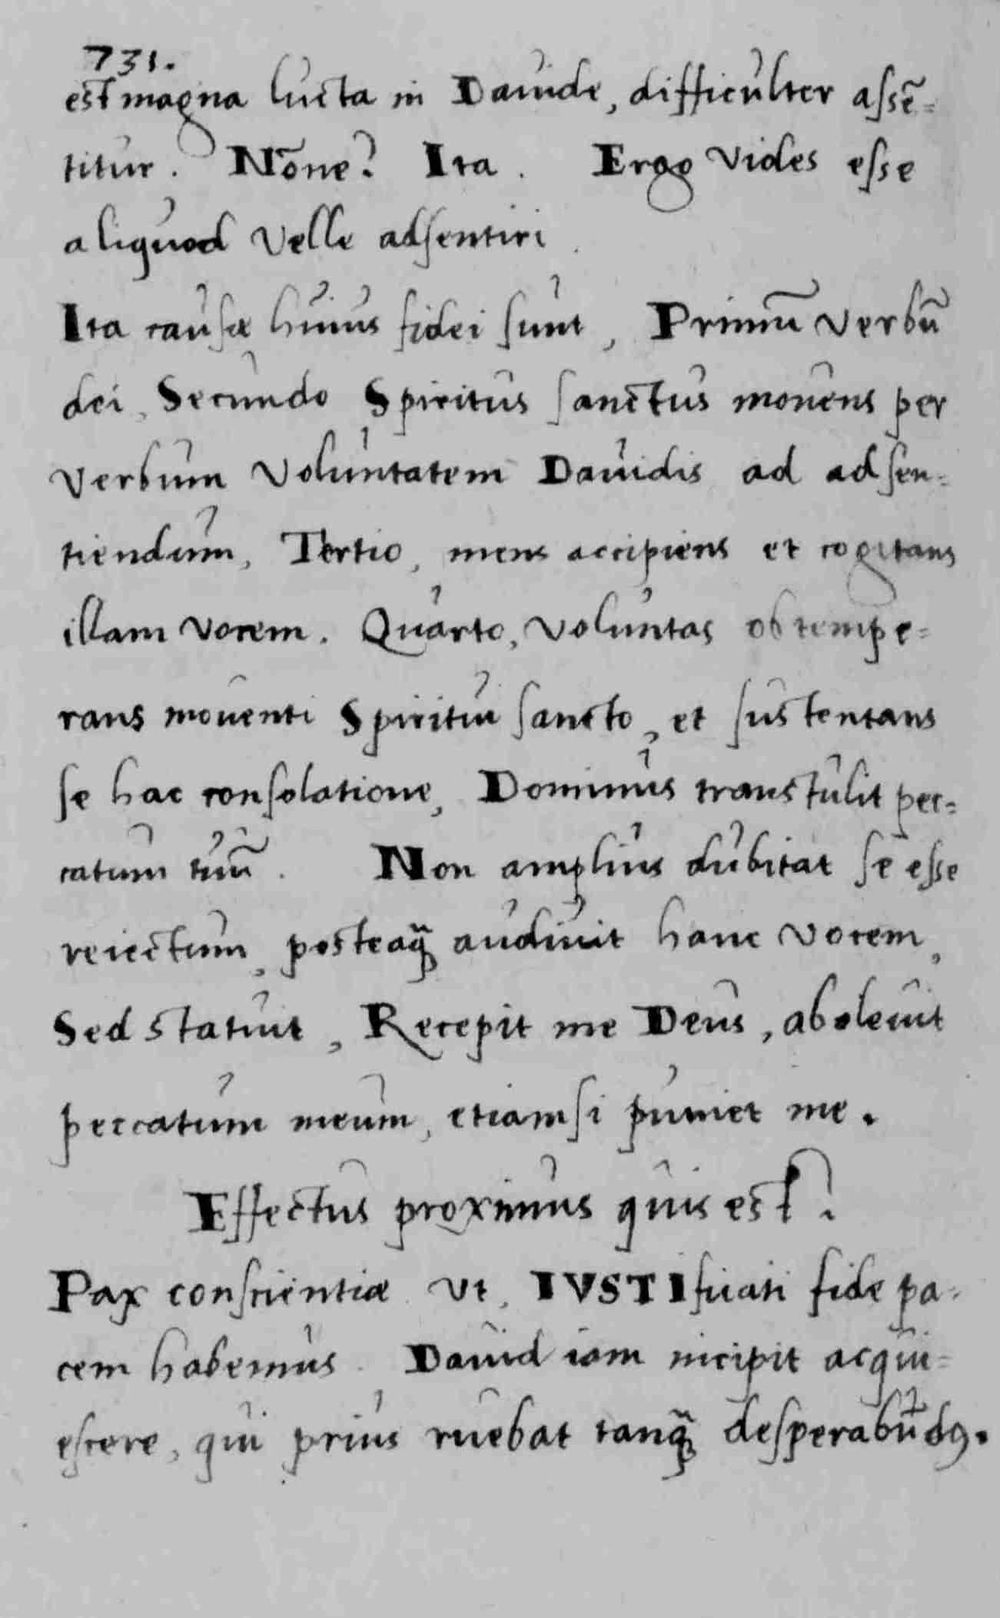 731.
est magna lucta in Dauide, difficulter assẽ=
titur. Nõne? Ita. Ergo vides esse
aliquod velle adsentiri.
Ita causæ huius fidei sunt, Primũ verbũ
dei, Secundo Spiritus sanctus mouens per
verbum voluntatem Dauidis ad adsen=
tiendum, Tertio, mens accipiens et cogitans
illam vocem. Quarto, voluntas obtempe=
rans mouenti Spiritui sancto, et sustentans
se hac consolatione, Dominus transtulit pec=
catum tuũ. Non amplius dubitat se esse
reiectum, posteaq̃ audiuit hanc vocem,
Sed statuit, Recepit me Deus, aboleuit
peccatum meum, etiamsi puniet me.
Effectus proximus quis est?
Pax conscientiæ vt, IVSTIficati fide pa=
cem habemus. Dauid iam incipit acqui=
escere, qui prius ruebat tanq̃ desperabũdꝰ.